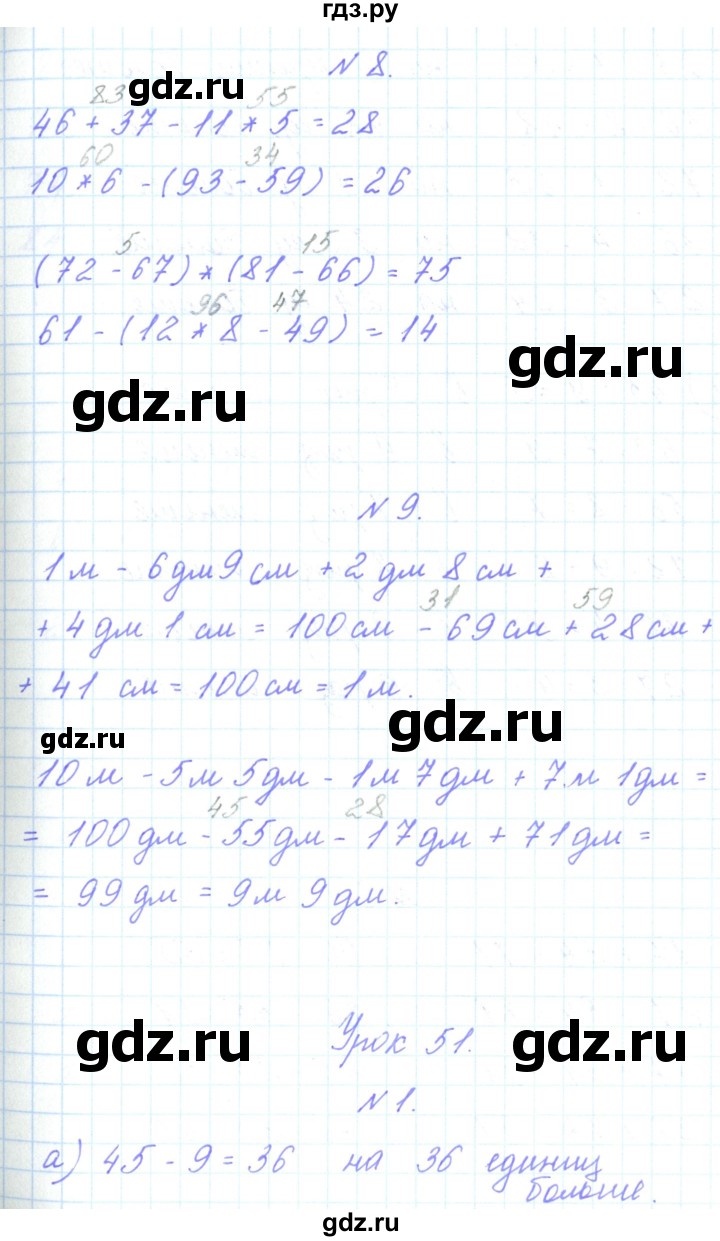 гдз.ру
N 8.
83 55
46 + 37 - 11 * 5 = 28
60 34
10 * 6 - (93 - 59) = 26
5 15
(72 - 67) * (81 - 66) = 75
96 47
61 - (12 * 8 - 49) = 14
gdz.ru
gdz.ru
gdz.ru
N 9.
1 м - 6 дм 9 см + 2 дм 8 см +
31 59
+ 4 дм 1 см = 100 см - 69 см + 28 см +
+ 41 см = 100 см = 1 м.
gdz.ru
gdz.ru
10 м - 5 м 5 дм - 1 м 7 дм + 7 м 1 дм =
45 28
= 100 дм - 55 дм - 17 дм + 71 дм =
= 99 дм = 9 м 9 дм.
gdz.ru
gdz.ru
Урок 51.
N 1.
а) 45 - 9 = 36 на 36 единиц
больше.
gdz.ru